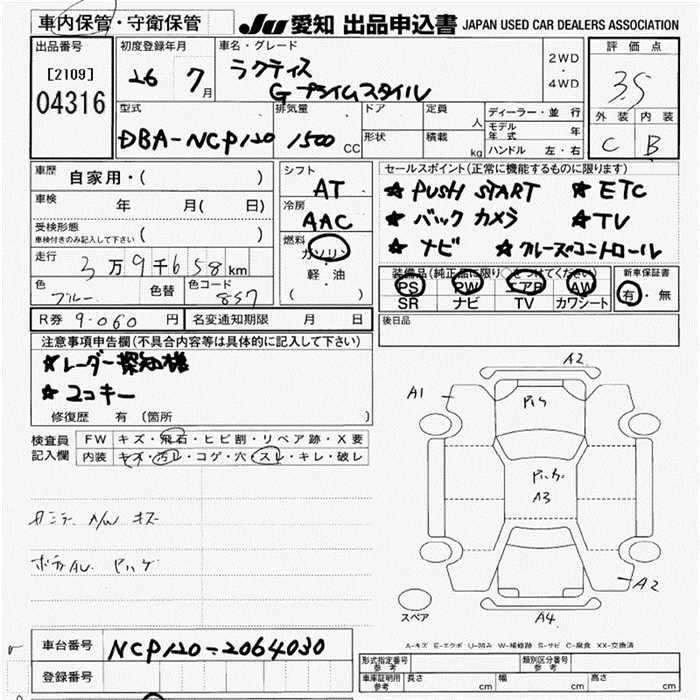 車内保管・守衛保管 JU 愛知 出品申込書 JAPAN USED CAR DEALERS ASSOCIATION
出品番号 初度登録年月 車名・グレード 2WD ・ 4WD 評価点
[2109] 26 7月 ラクティス 3.5
04316 G プライムスタイル
外装 内装
C B
型式 排気量 ドア 定員 人 ディーラー・並行
DBA-NCP120 1500CC 形状 積載 kg モデル年式 年
ハンドル 左・右
車歴 自家用・( )
車検 年 月( 日)
受検形態
車検付きのみ記入して下さい ( )
走行 3万9千658km
色 ブルー 色替 色コード 8S7
シフト AT
冷房 AAC
燃料 ガソリン
・
軽・油
( )
セールスポイント(正常に機能するものに限ります)
★ PUSH START ★ ETC
★ バックカメラ ★TV
★ ナビ ★クルーズコントロール
装備品(純正品に限り○をつけてください) 新車保証書
PS PW エアB AW 有・無
SR ナビ TV カワシート
R券 9-060円 名変通知期限 月 日
後日品
注意事項申告欄(不具合内容等は具体的に記入して下さい)
★レーダー探知機
★スコキー
修復歴 有 (箇所 )
検査員記入欄 FW キズ・飛石・ヒビ割・リペア跡・X要
内装 キズ・汚レ・コゲ・穴・スレ・キレ・破レ
キズ
A2
A1
A3
A2
A4
スペア
A-キズ E-エクボ U-凹み W-補修跡 S-サビ C-腐食 XX-交換済
車台番号 NCP120-2064030
登録番号
形式指定番号 参考 類別区分番号 参考
車庫証明用 参考 長さ cm 幅 cm 高さ cm